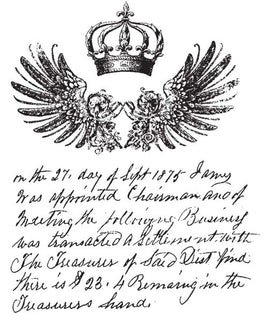 on the 27. day of Sept 1875 James
was appointed Chairman and of
Meeting the following Business
was transacted a Settlement with
The Treasurer of Said Dist find
there is $ 23.4 Remaing in the
Treasurers hand.